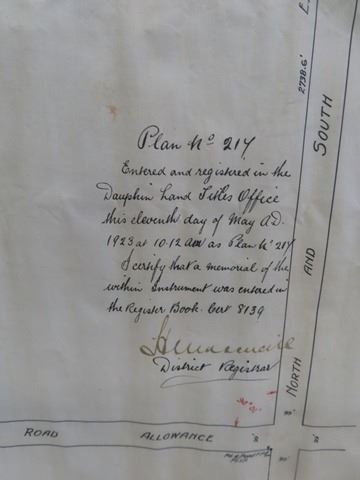 2738.6'
SOUTH
AND
NORTH
Plan No 217
Entered and registered in the
Dauphin Land Titles Office
this eleventh day of May A.D.
1923 at 10.12 AM as Plan No 217
I certify that a memorial of the
within Instrument was entered in
the Register Book. Cert 8139
District Registrar
ROAD ALLOWANCE